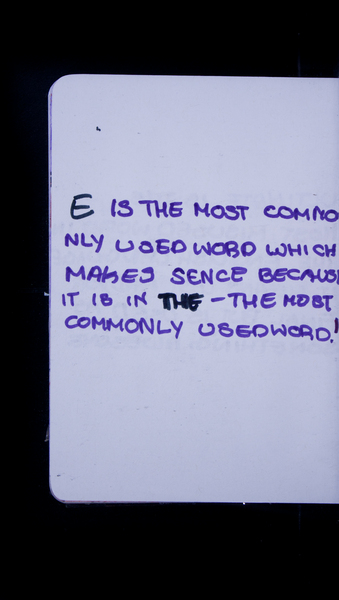 E IS THE MOST COMMO
NLY USED WORD WHICH
MAKES SENCE BECAUS
IT IS IN THE - THE MOST
COMMONLY USED WORD.!